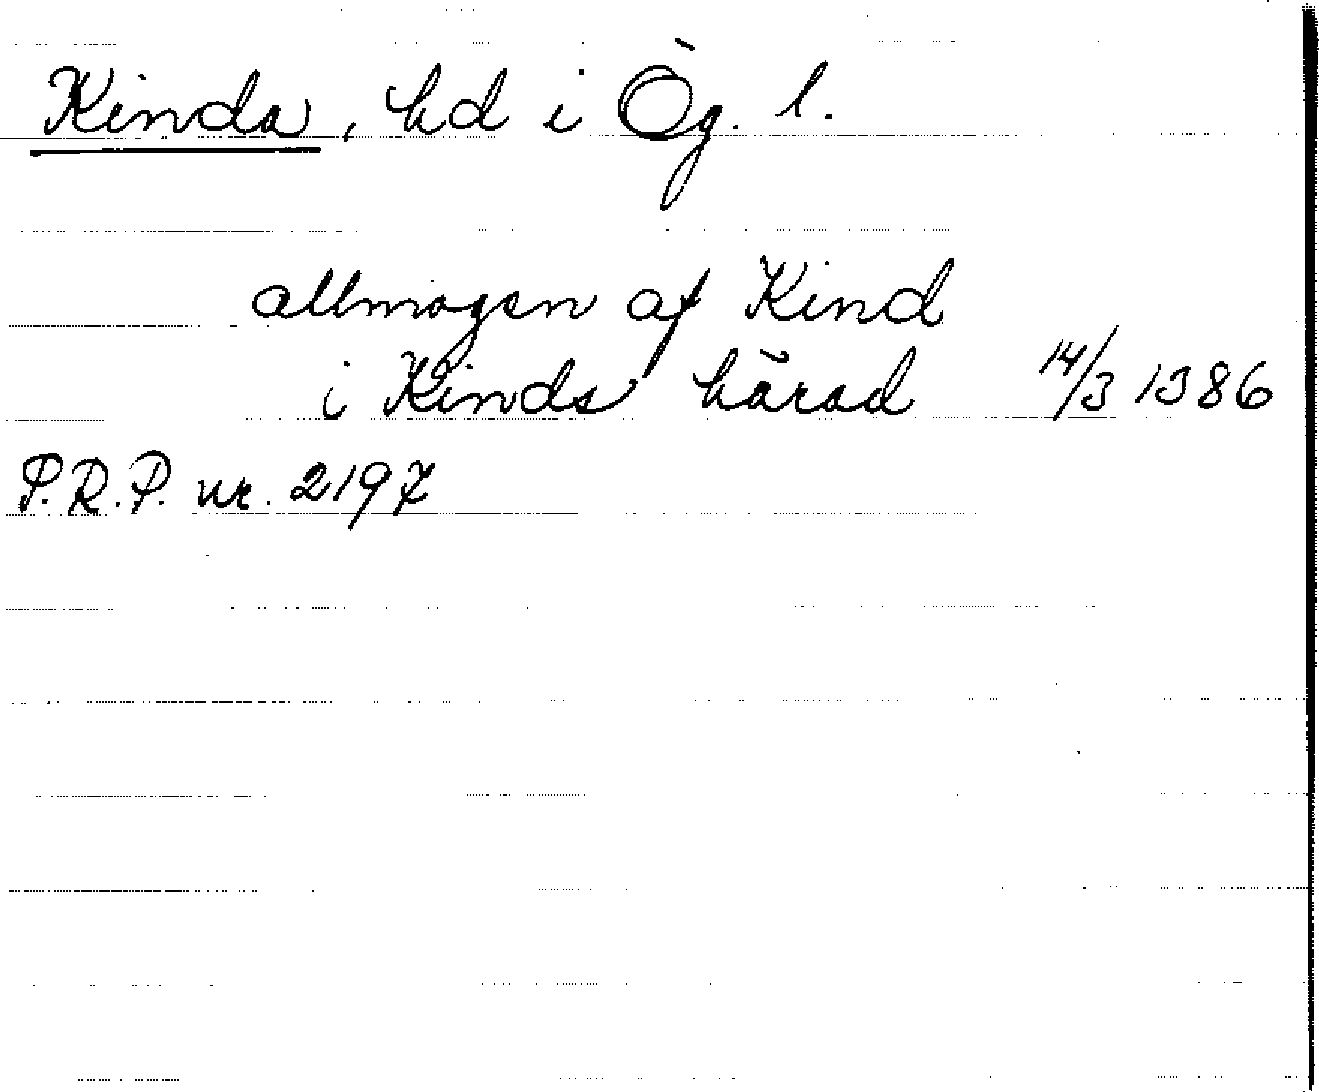 Kinda, hd i Ög. l.
allmogen af Kind
i Kinds härad 14/3 1386
P.R.P. nr. 2197